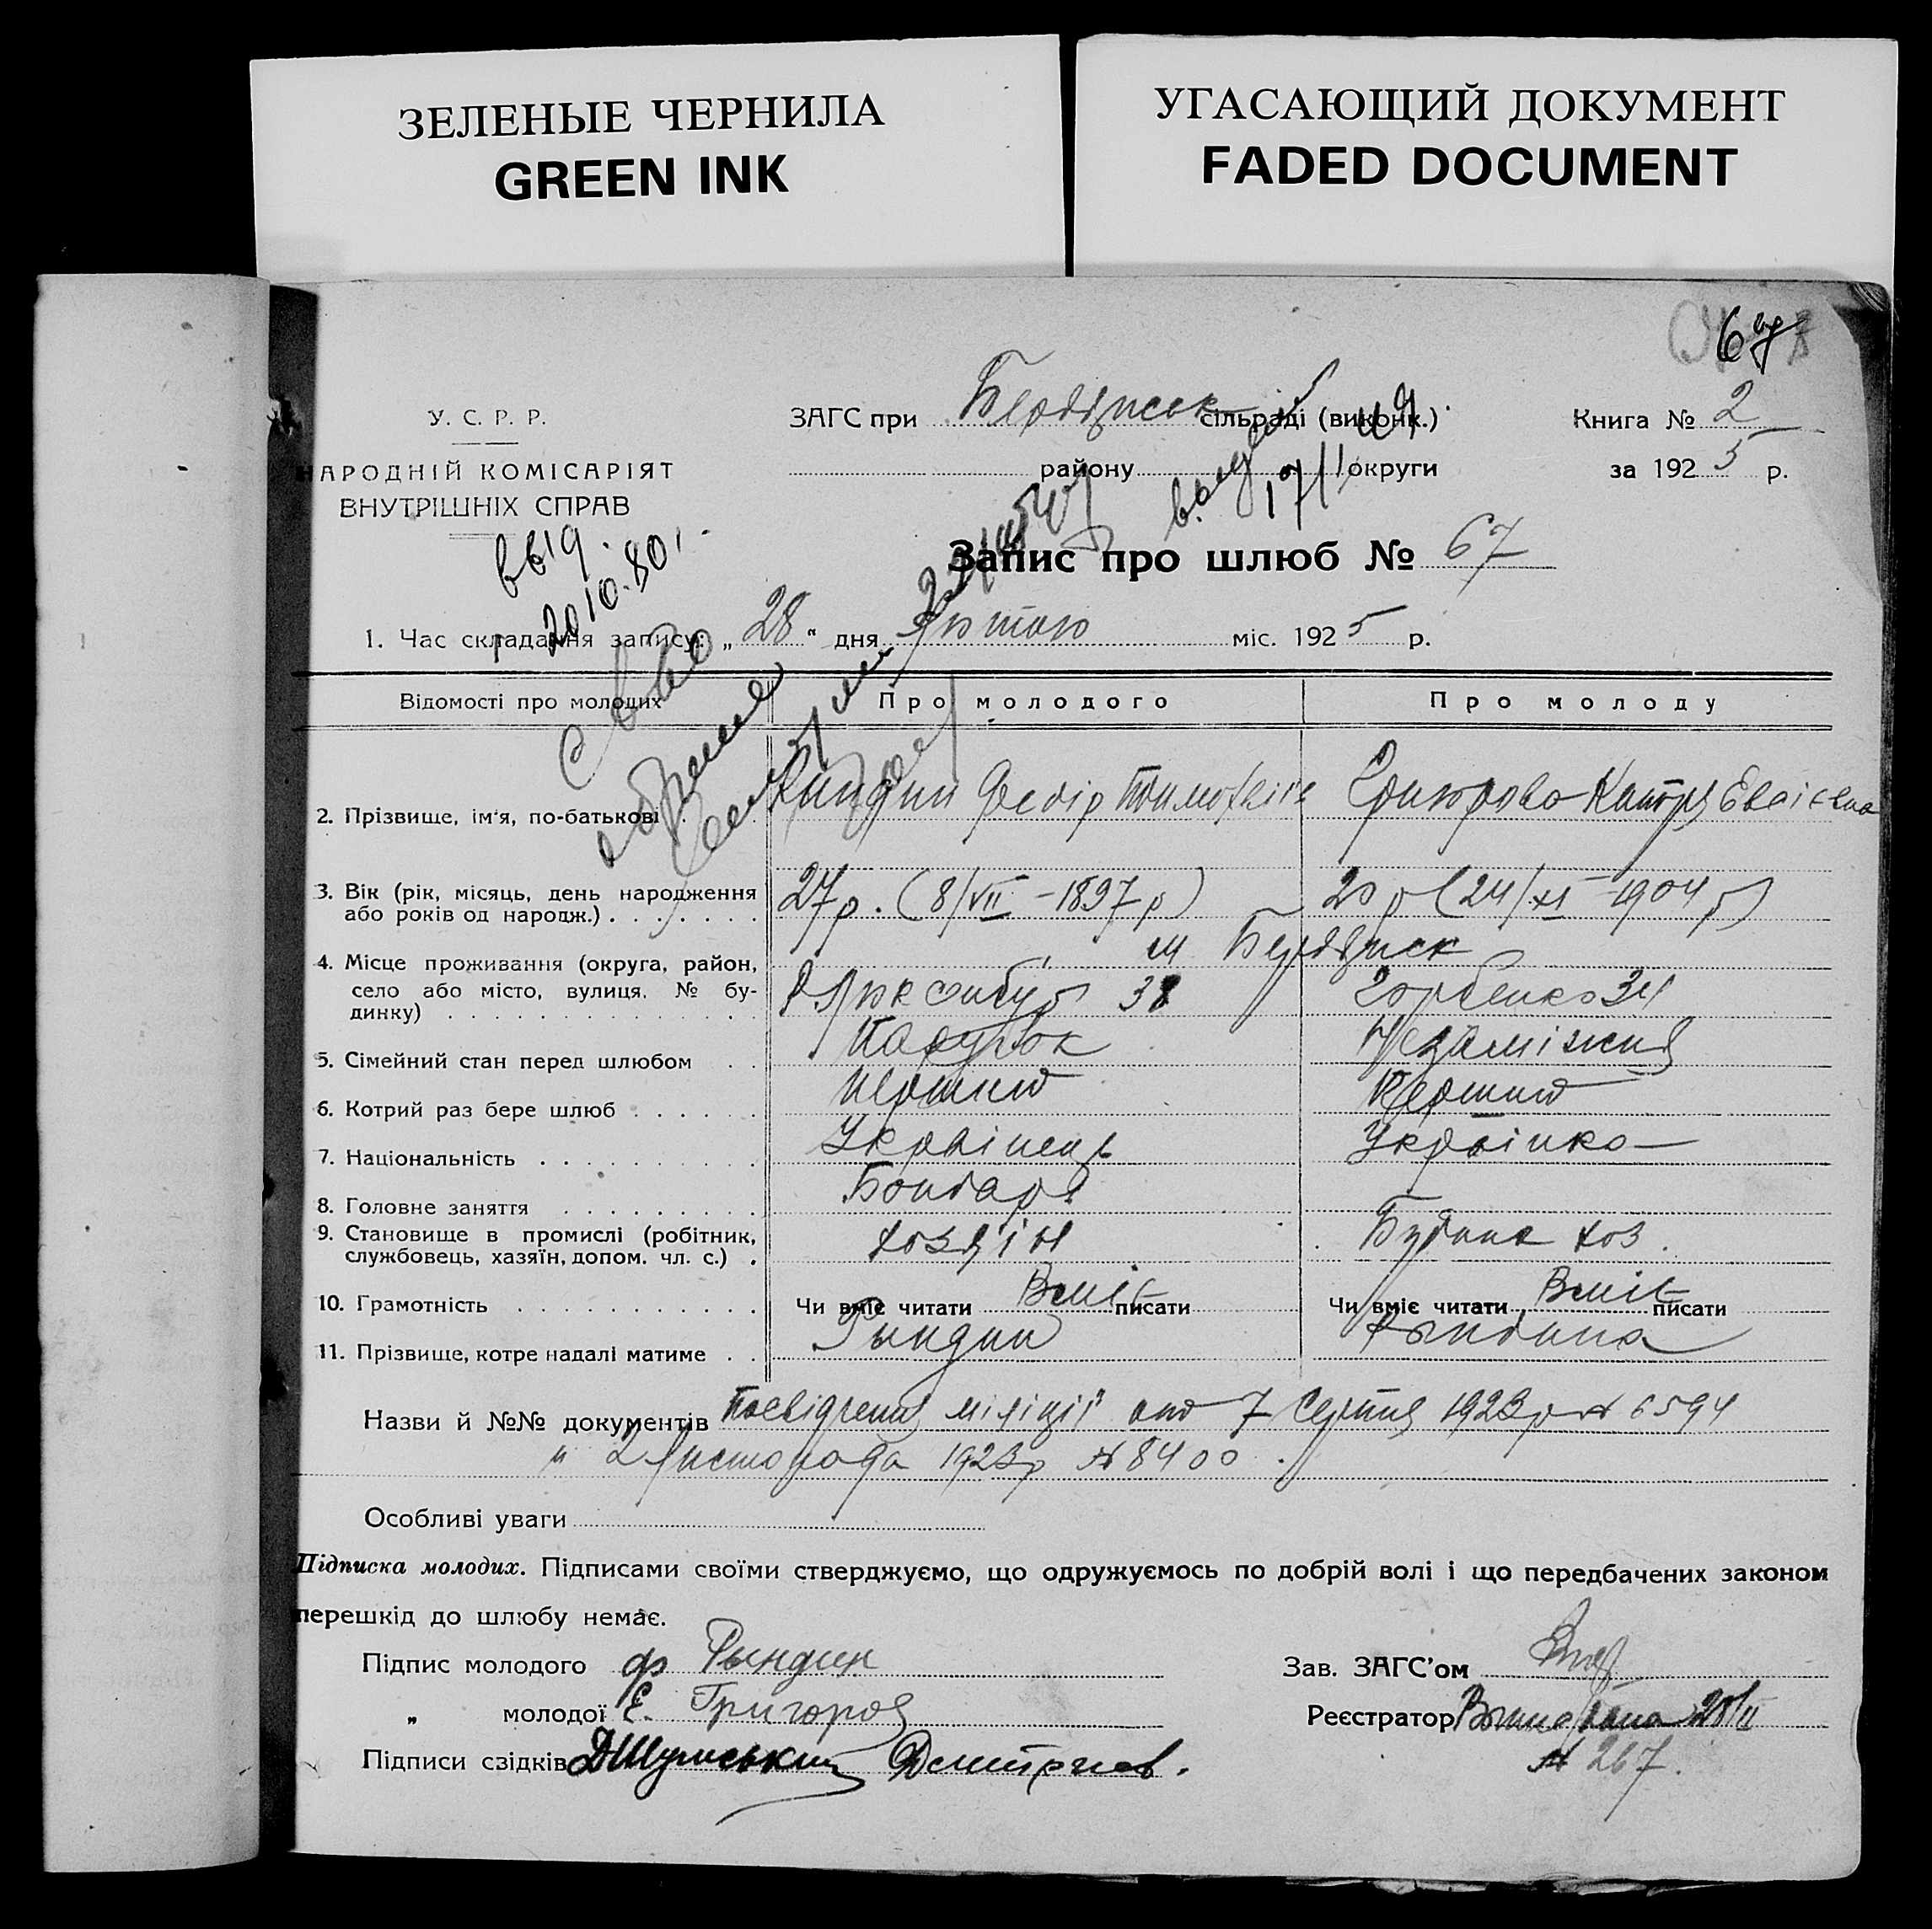 ЗЕЛЕНЫЕ ЧЕРНИЛА
GREEN INK
УГАСАЮЩИЙ ДОКУМЕНТ
FADED DOCUMENT
67
У. С. Р. Р.
НАРОДНІЙ КОМІСАРІЯТ
ВНУТРІШНІХ СПРАВ
ЗАГС при Бердянськ сільраді (виконк.)
району округи
Книга № 2
за 1925 р.
Запис про шлюб № 67
1. Час складання запису: „28“ дня Лютого міс. 1925 р.
Відомості про молодих
Про молодого
Про молоду
2. Прізвище, ім'я, по-батькові
Федір Тимофієв
Григорова Катря
3. Вік (рік, місяць, день народження
або років од народж.)
27 р. (8/VII - 1897 р)
20 р (24/XI - 1904 р)
4. Місце проживання (округа, район,
село або місто, вулиця, № бу-
динку)
м Бердянск
Р. Люксембург 38
Горбенко 34
5. Сімейний стан перед шлюбом
Парубок
Незаміжня
6. Котрий раз бере шлюб
Перший
Перший
7. Національність
Українець
Українка
8. Головне заняття
Бондарь
9. Становище в промислі (робітник,
службовець, хазяїн, допом. чл. с.)
хозяїн
хоз.
10. Грамотність
Чи вміє читати Вміє писати
Чи вміє читати Вміє писати
11. Прізвище, котре надалі матиме
Рындин
Рындина
Назви й №№ документів Посвідчення міліції 7 Серпня 1923 р № 6594
" 2 Листопада 1923 р № 8400.
Особливі уваги
Підписка молодих. Підписами своїми стверджуємо, що одружуємось по добрій волі і що передбачених законом
перешкід до шлюбу немає.
Підпис молодого Ф Рындин
Зав. ЗАГС'ом
„ молодої Е. Григоров
Реєстратор 28/II
Підписи свідків
№ 267.